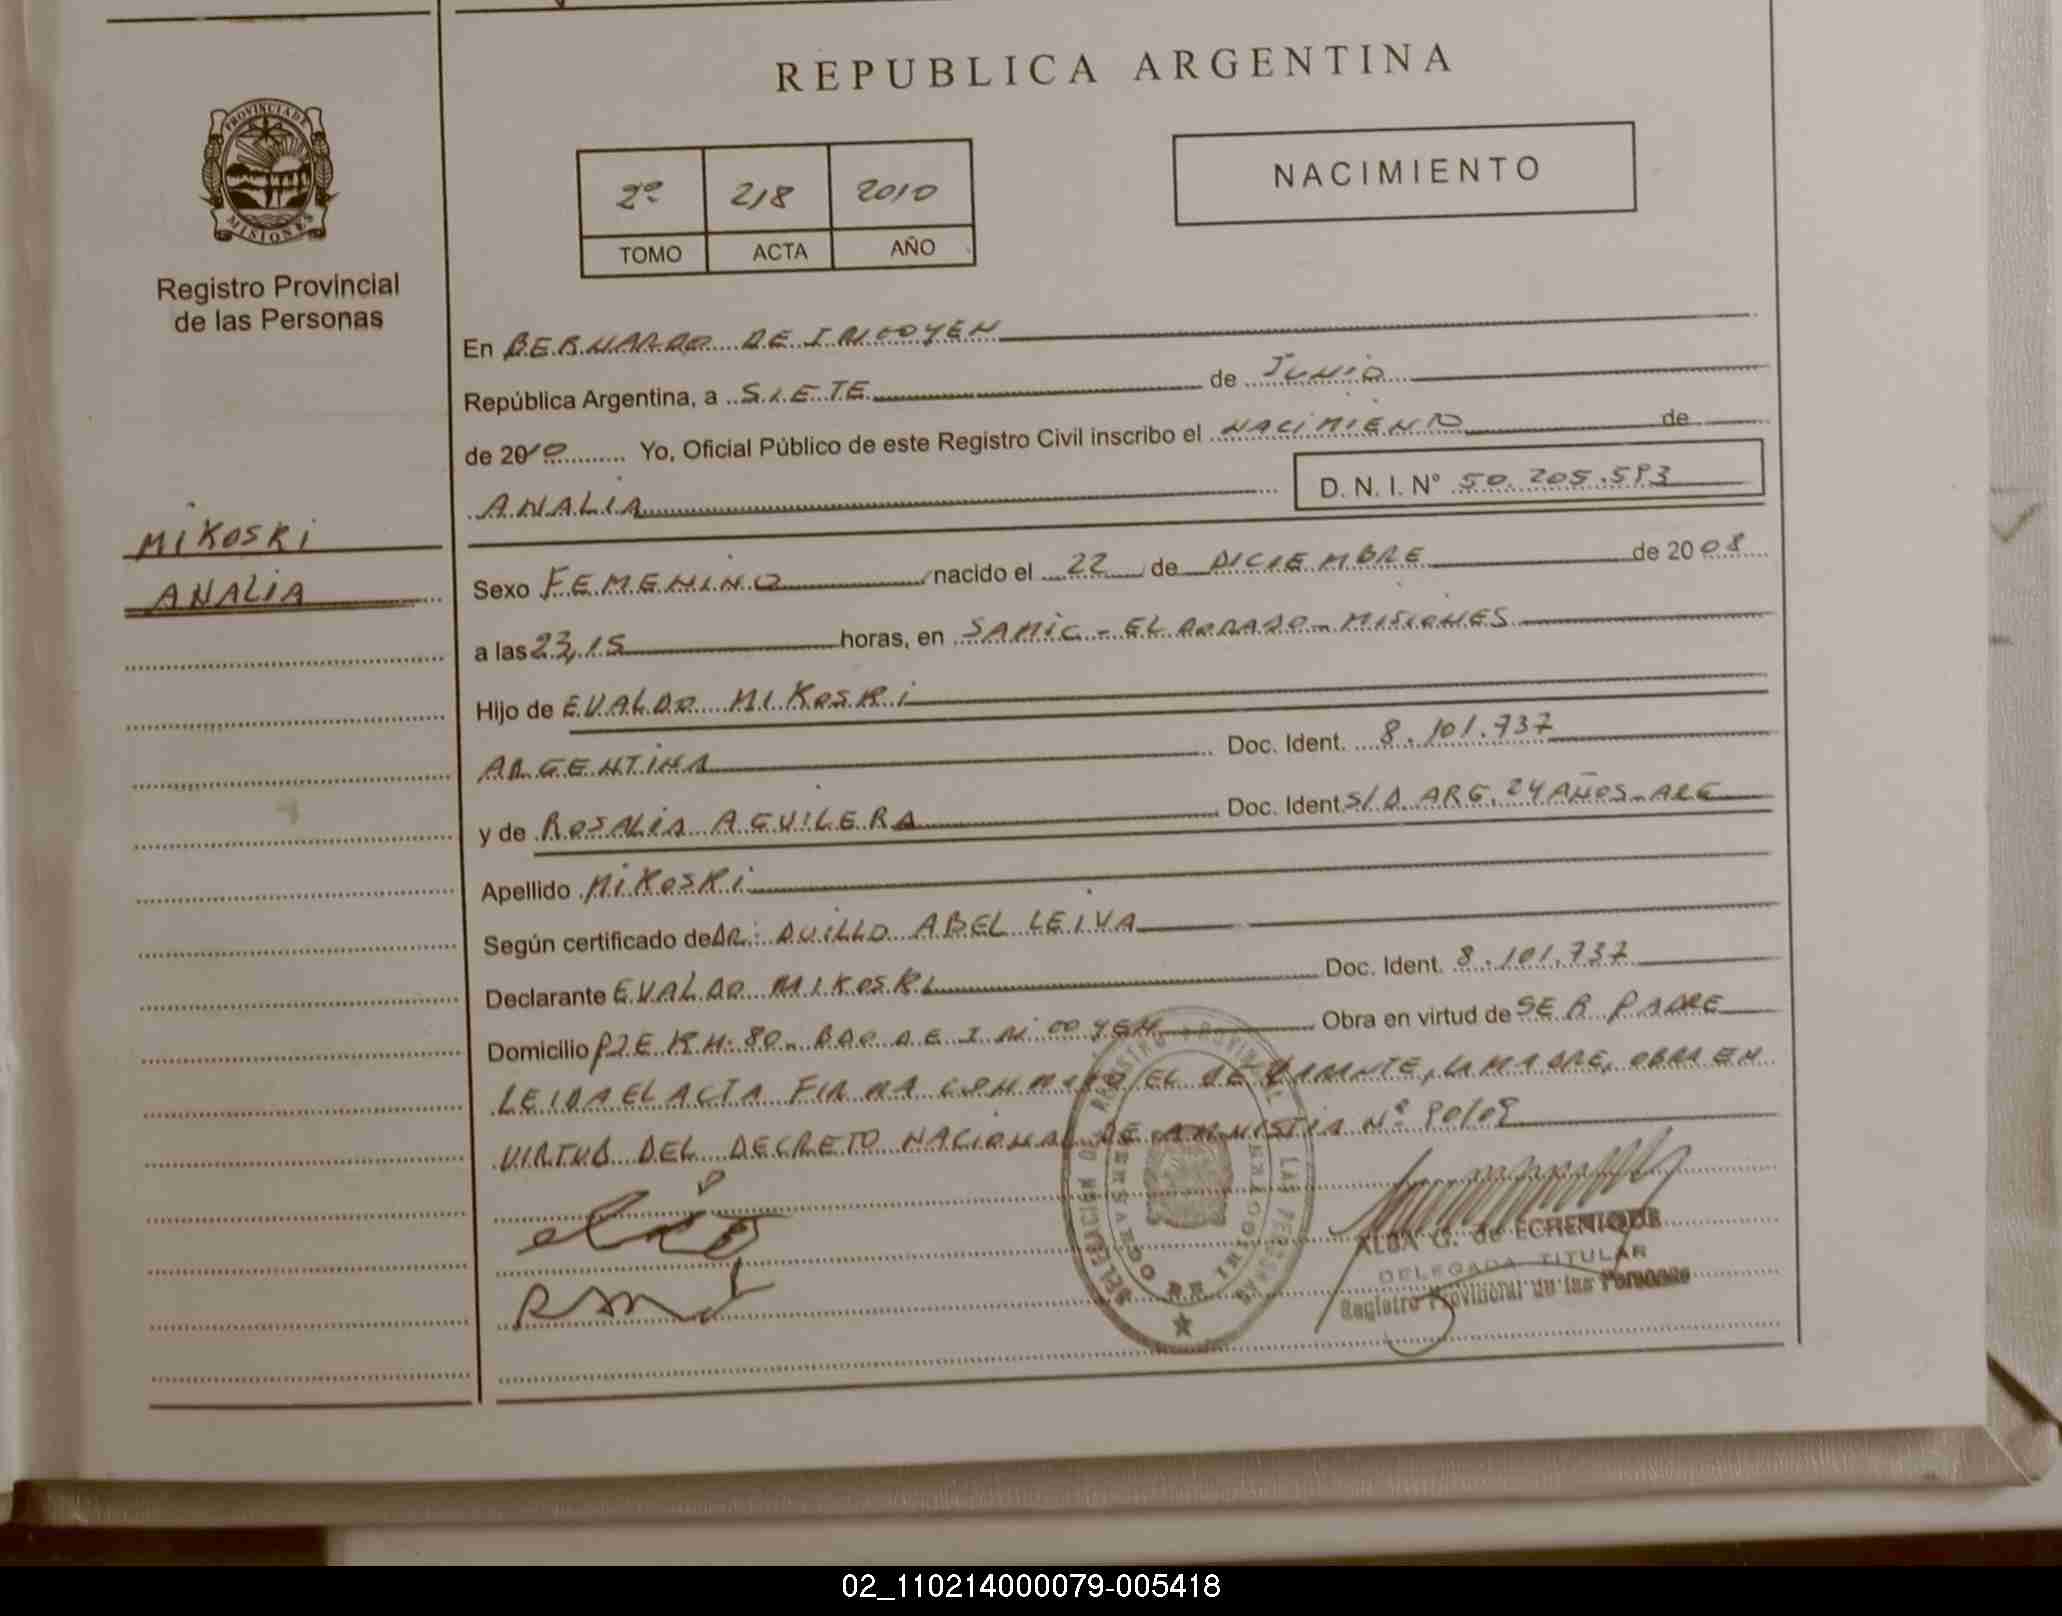 REPUBLICA ARGENTINA
PROVINCIA DE
MISIONES
Registro Provincial
de las Personas
2º 218 2010
TOMO ACTA AÑO
NACIMIENTO
En BERNARDO DE IRIGOYEN
República Argentina, a SIETE de JUNIO
de 2010 Yo, Oficial Público de este Registro Civil inscribo el NACIMIENTO de
ANALIA D. N. I. Nº 50.205.593
MIKOSKI
ANALIA
Sexo FEMENINO nacido el 22 de DICIEMBRE de 2008
a las 23,15 horas, en SAMIC - ELDORADO - MISIONES
Hijo de EVALDO MIKOSKI
ARGENTINA Doc. Ident. 8.101.737
y de ROSALIA AGUILERA Doc. Ident S/D ARG. 24 AÑOS - ARG
Apellido MIKOSKI
Según certificado de DR: DUILLO ABEL LEIVA
Declarante EVALDO MIKOSKI Doc. Ident. 8.101.737
Domicilio PJE KM: 80 - BDO DE IRIGOYEN Obra en virtud de SER PADRE
LEIDA EL ACTA FIRMA CONMIGO EL DECLARANTE, LA MADRE, OBRA EN
VIRTUD DEL DECRETO NACIONAL DE AMNISTIA Nº 90/09
DELEGACION DEL REGISTRO PROVINCIAL DE LAS PERSONAS
BERNARDO DE IRIGOYEN
ALBA G. de ECHENIQUE
DELEGADA TITULAR
Registro Provincial de las Personas
02_110214000079-005418